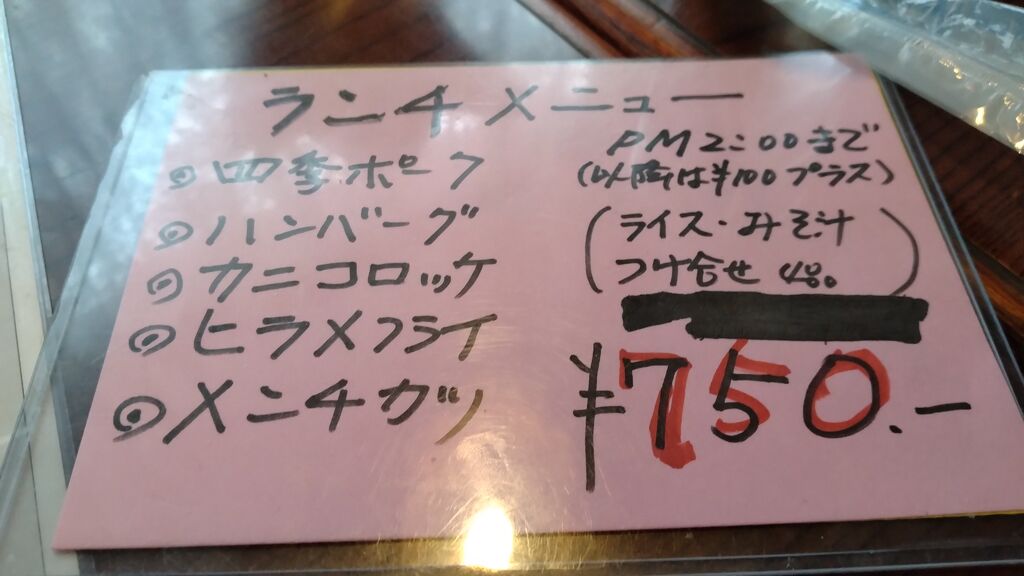 ランチメニュー
PM2:00まで
(以降は¥100プラス)
◎四季ポーク
◎ハンバーグ
◎カニコロッケ
◎ヒラメフライ
◎メンチカツ
(ライス・みそ汁
つけ合せ 40。)
¥750.-